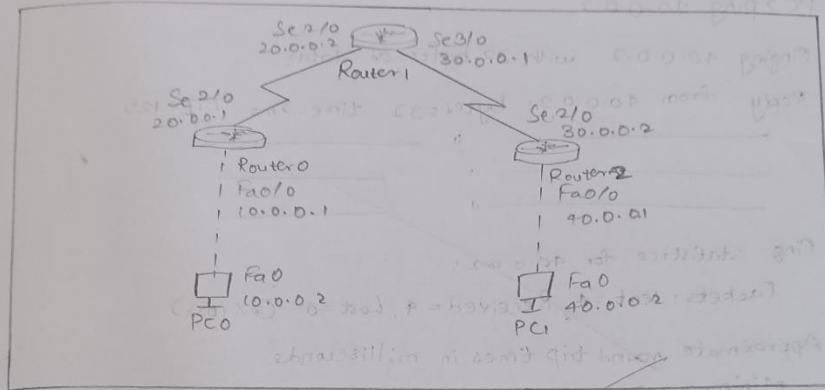 Se 2/0
20.0.0.2
Se3/0
30.0.0.1
Router1
Se 2/0
20.0.0.1
Se 2/0
30.0.0.2
Router0
Fa0/0
10.0.0.1
Router 2
Fa0/0
40.0.0.1
Fa0
10.0.0.2
PC0
Fa0
40.0.0.2
PC1